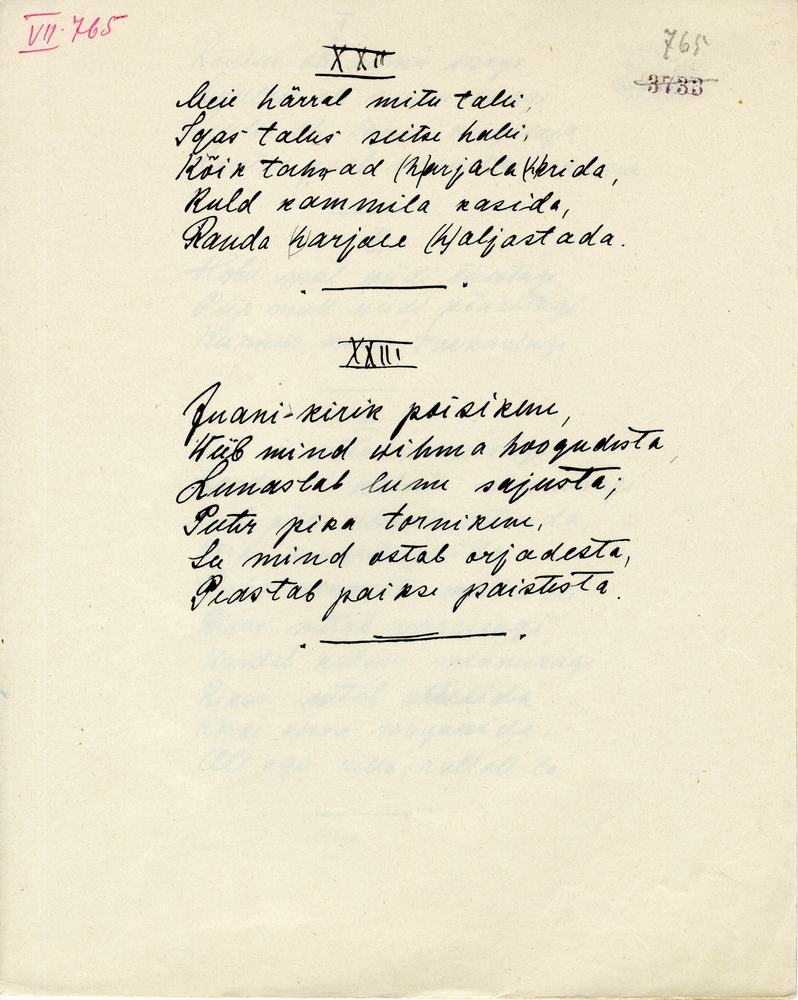 VII. 765
765
3733
XXII
Meie härral mitu talu,
Igas talus seitse halli,
Kõik tahwad (h)arjala (h)erida,
Kuld kammila kasida,
Rauda (h)arjale (h)aljastada.
XXIII
Juani-kirik poisikene,
Wiib mind wihma hoogudesta,
Lunastab lume sajusta;
Peetr pika tornikene,
See mind ostab orjadesta,
Peastab paikse paistesta.